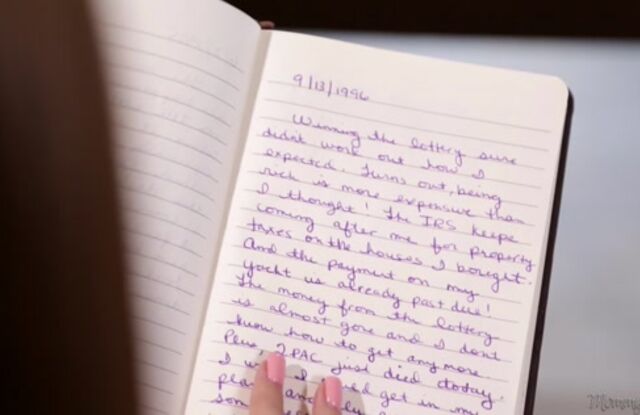 9/13/1996
Winning the lottery sure
didn't work out how I
expected. Turns out, being
rich is more expensive than
I thought! The IRS keeps
coming after me for property
taxes on the houses I bought.
And the payment on my
yacht is already past due!
The money from the lottery
is almost gone and I don't
know how to get any more.
Plus, 2PAC just died today.
I get in my
and